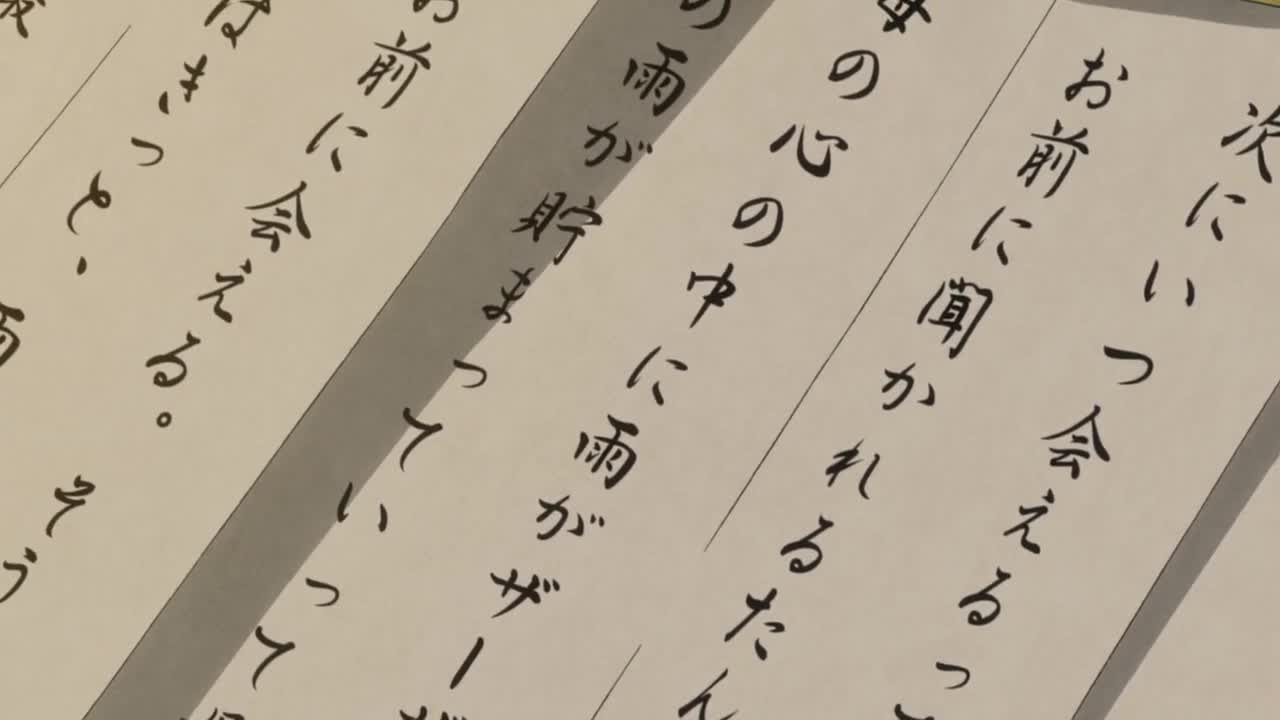 次にいつ会えるって
お前に聞かれるたん
母の心の中に雨がザーザ
の雨が貯まっていって
お前に会える。そう
はきっと、雨